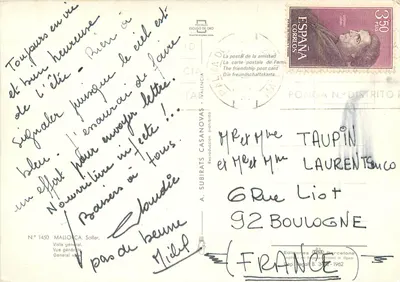 Toujours en vie
et bien heureuse
de l'être - Rien à
signaler puisque le ciel est
bleu. J'essaierai de faire
un effort pour envoyer lettre.
Nourriture infecte!!!
Baisers à tous.
Claudie
pas de beurre
La postal de la amistad
La carte postale de l'amitié
The friendship post card
Die freundschaftskarte
ESPAÑA
CORREOS
3,50
A. SUBIRATS CASANOVAS
Nº 1450 MALLORCA. Sóller.
Vista general
Vue générale
General view
Mr et Mme TAUPIN
et Mr et Mme LAURENT
6 Rue Liot
92 BOULOGNE
(FRANCE)